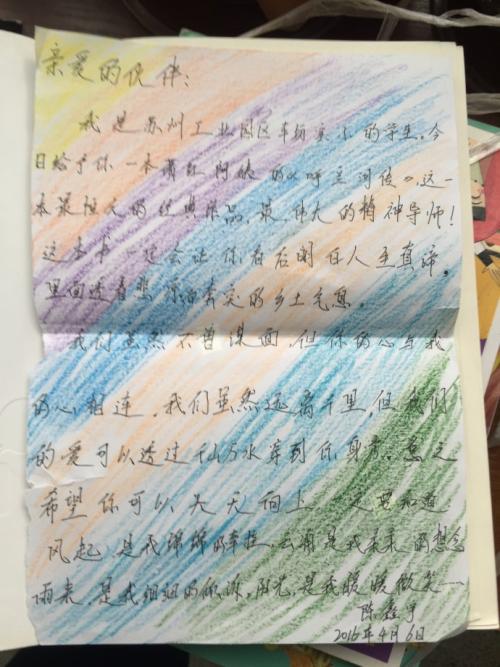 亲爱的伙伴：
我是苏州工业园区车坊实小的学生。今
日给予你一本萧红阿姨的《呼兰河传》，这一
本最恒久的经典作品，最伟大的精神导师！
这本书一定会让你在后明白人生真谛。
里面透着悲凉的乡土气息。
我们虽然不曾谋面，但你的心与我
的心相连，我们虽然远离千里，但我们
的爱可以透过千山万水穿到你身旁。总之
希望你可以天天向上，一定要知道
风起，是我绵绵的牵挂，云涌是我的想念
雨来，是我细细的倾诉，阳光，是我暖暖微笑……
陈
2016年4月6日